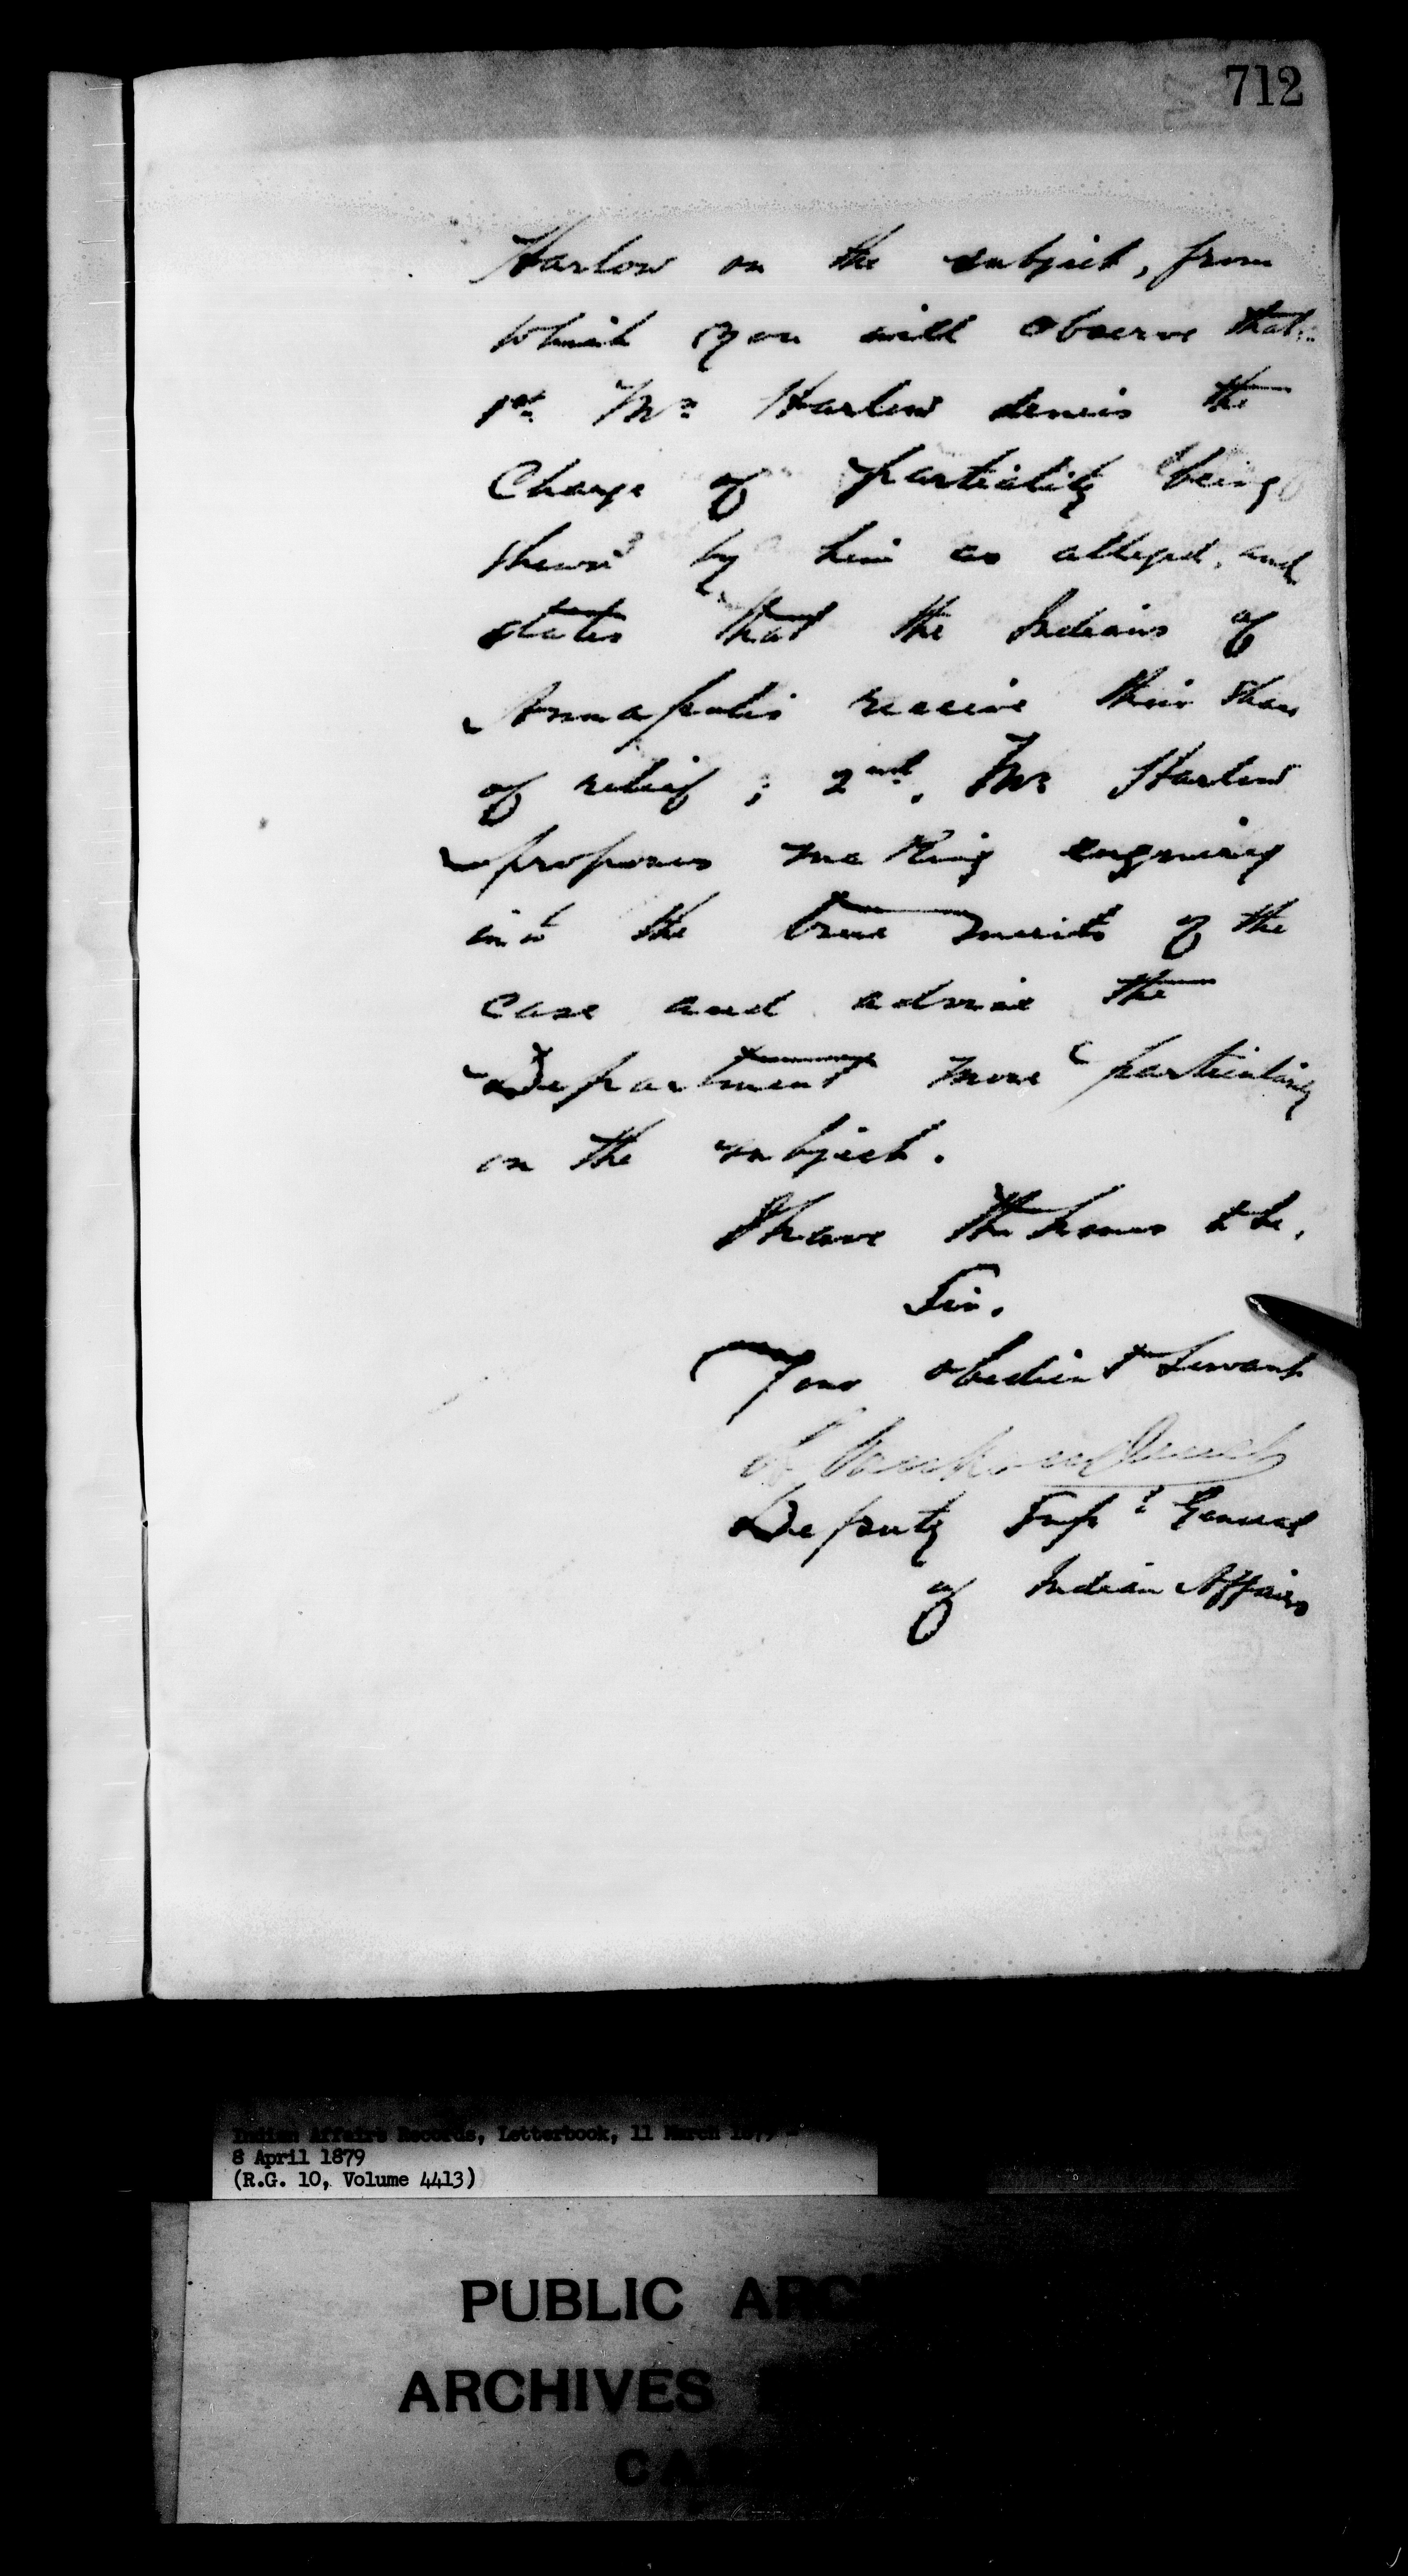 712
Harlow on the subject, from
which you will observe that:
1st Mr Harlow denies the
Charge of partiality being
shewn by him as alleged, and
states that the Indians of
Annapolis receive their share
of relief; 2nd, Mr Harlow
proposes making enquiry
into the true merits of the
case and advise the
Department more particularly
on the subject.
I have the honor to be,
Sir,
Your obedient Servant
L Vankoughnet
Deputy Supt General
of Indian Affairs
Indian Affairs Records, Letterbook, 11 March 1879 -
8 April 1879
(R.G. 10, Volume 4413)
PUBLIC ARCH
ARCHIVES
CA